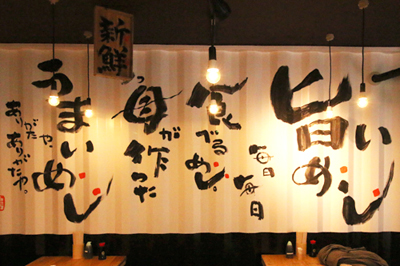 新鮮
旨いめし
毎日毎日
食べるめし
母が作った
うまいめし
ありがたや、
ありがたや。